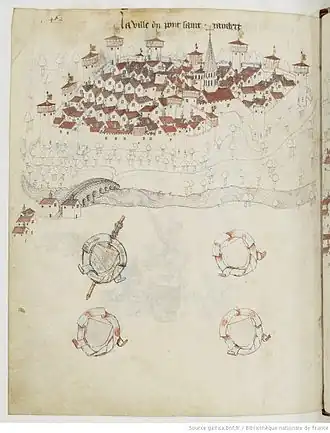 la ville du pont saint rambert
Source gallica.bnf.fr / Bibliothèque nationale de France